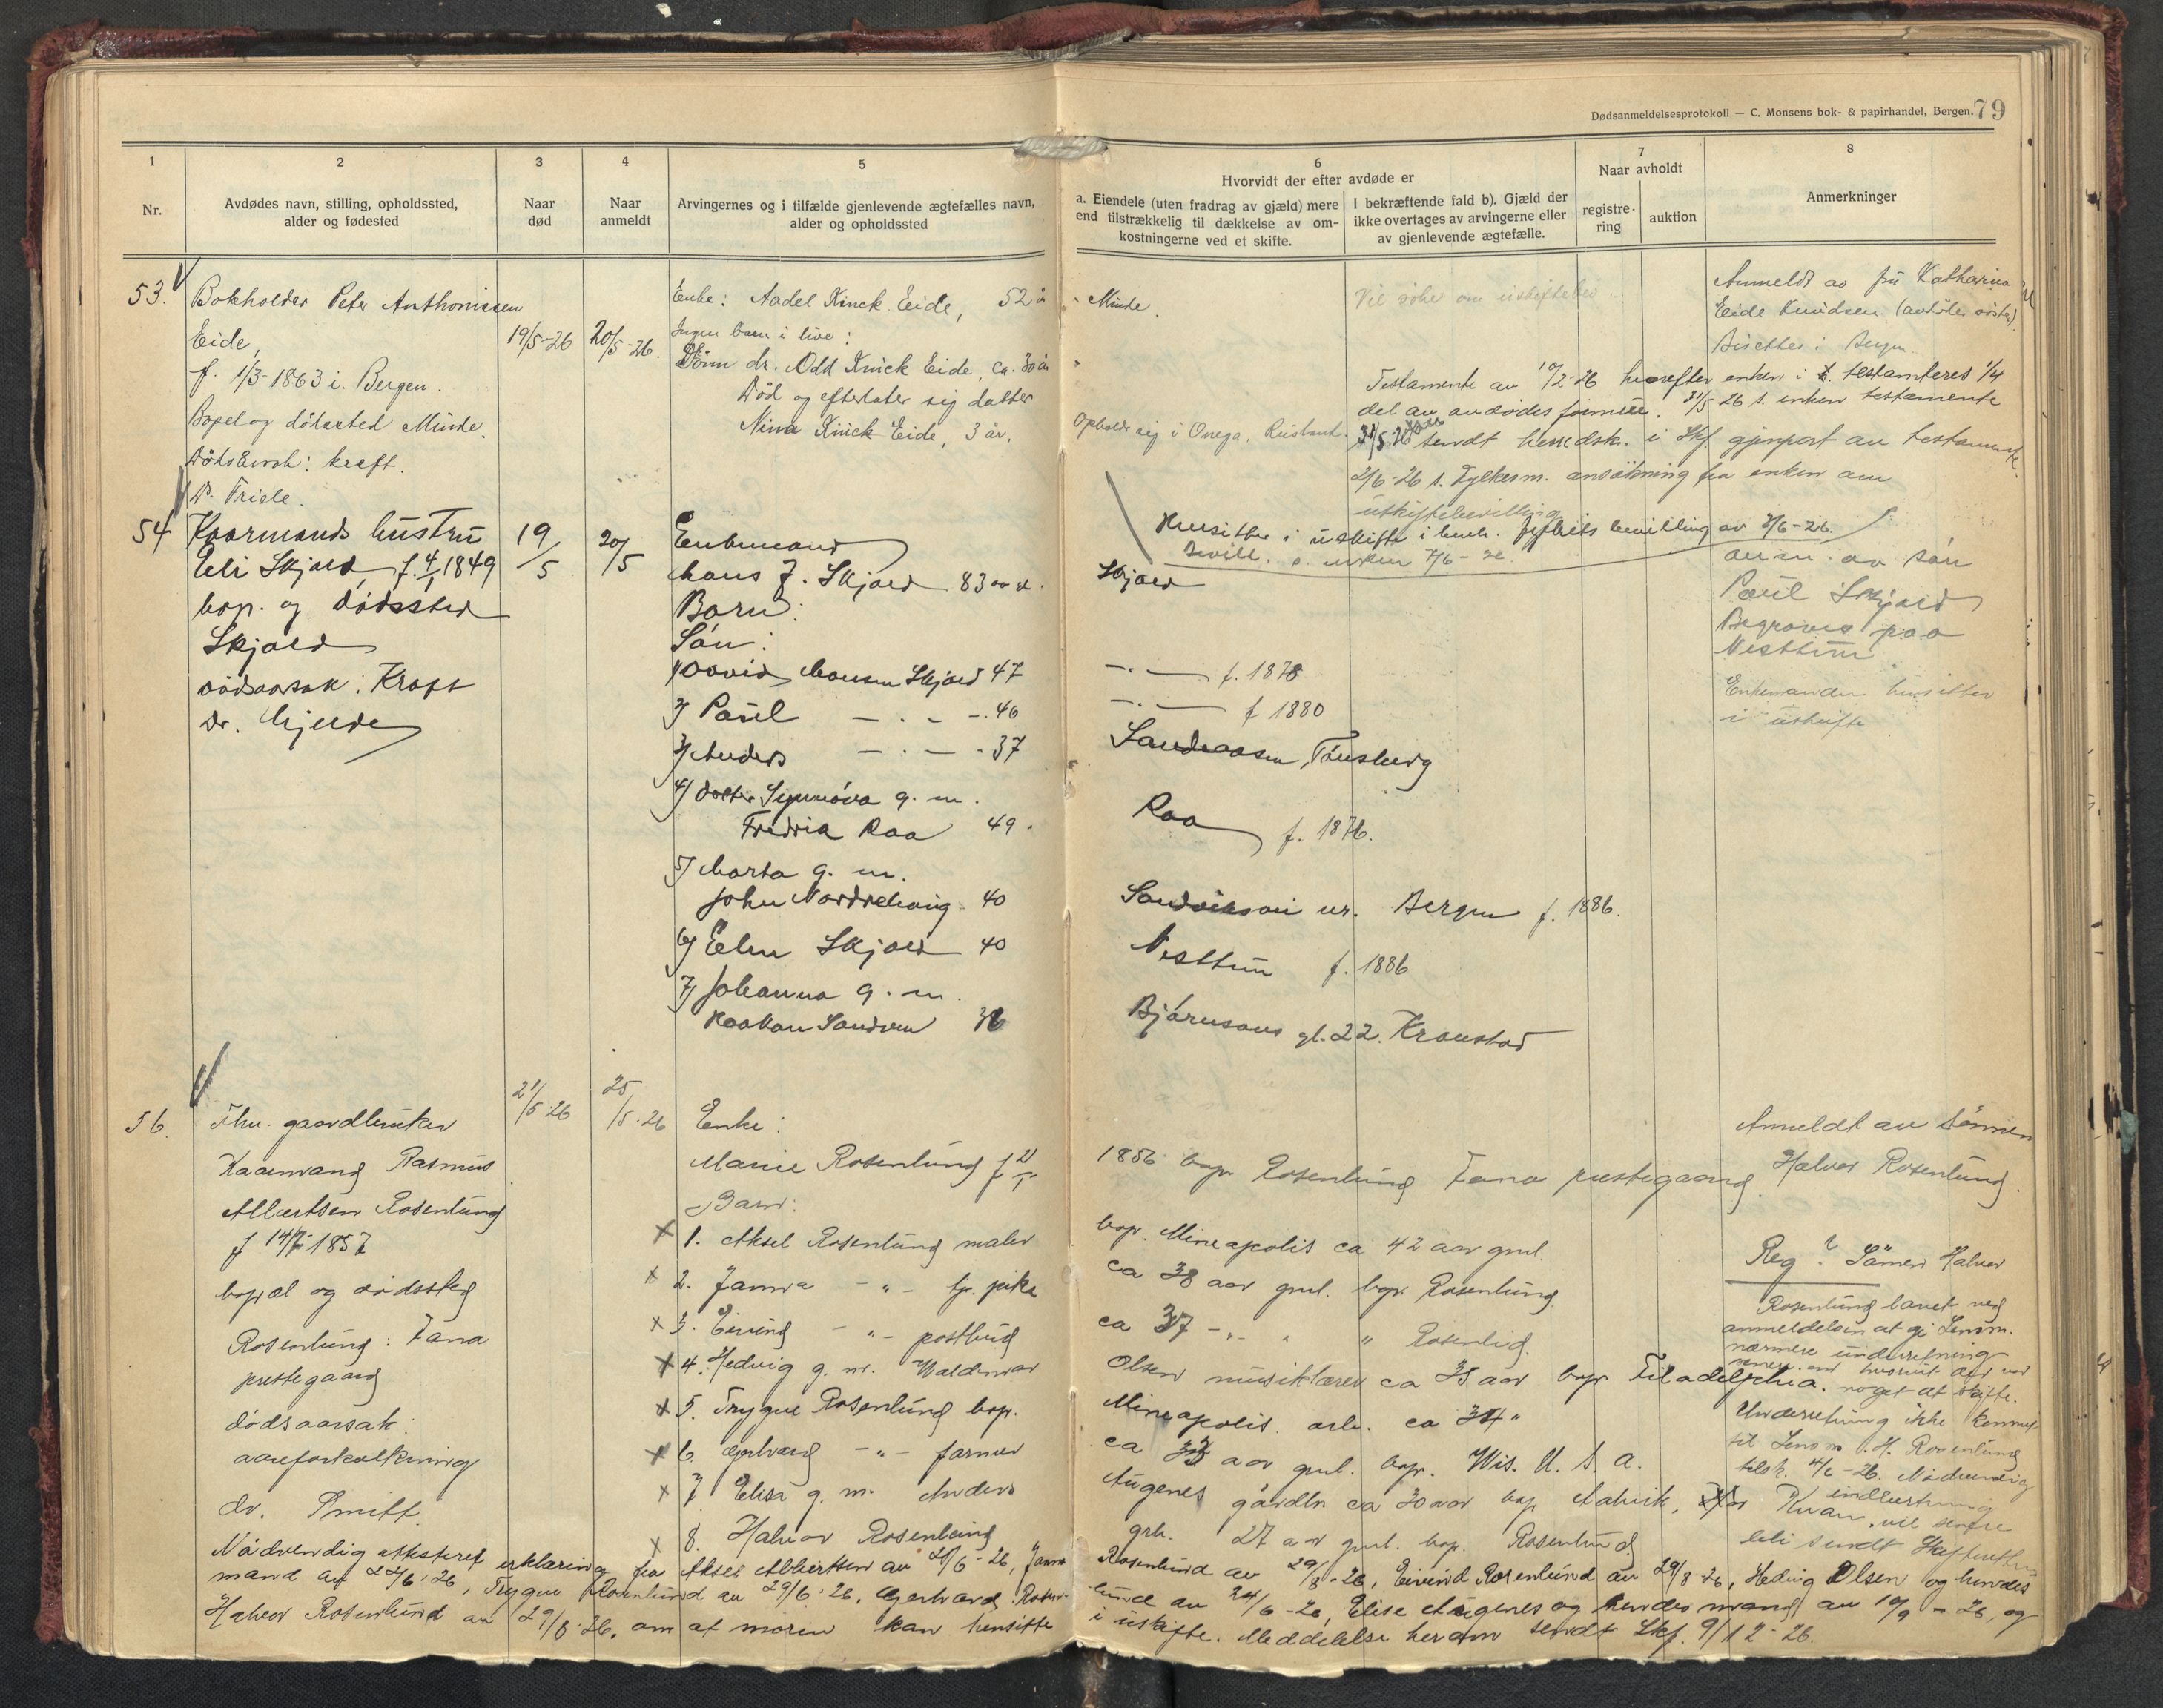 Dødsanmeldelsesprotokoll — C. Monsens bok- & papirhandel, Bergen. 79
1
2
3
4
5
6
7
8
Nr.
Avdødes navn, stilling, opholdssted,
alder og fødested
Naar
død
Naar
anmeldt
Arvingernes og i tilfælde gjenlevende ægtefælles navn,
alder og opholdssted
Hvorvidt der efter avdøde er
a. Eiendele (uten fradrag av gjæld) mere
end tilstrækkelig til dækkelse av om-
kostningerne ved et skifte.
I bekræftende fald b). Gjæld der
ikke overtages av arvingerne eller
av gjenlevende ægtefælle.
Naar avholdt
registre-
ring
auktion
Anmerkninger
53.
Bokholder Peter Anthonissen
Eide,
f. 1/3-1863 i Bergen.
Bopel og dödssted Minde.
Dödsårsak: kreft.
Dr. Friele.
19/5-26
20/5-26.
Enke: Aadel Kinck Eide, 52 år
Ingen barn i live:
Sönn dr. Odd Kinck Eide, ca. 30 år
Död og efterlater sig datter
Nina Kinck Eide, 3 år.
Minde.
Opholdt sig i Onega, Rusland.
Vil söke om uskiftebev.
Anmeldt av fru Katharina
Eide Knudsen (avdödes söster)
Bisettes i Bergen.
Testamente av 10/2-26 hvorefter enken i testamteres 1/4
del av avdödes formue. 31/5-26 s. enken testamente
sendt herredsk. i Skf. gjenpart av testamente.
2/6-26 s. Fylkesm. ansökning fra enken om
uskiftebevilling
Hensitter i uskifte i henh. Fylkets bevilling av 3/6-26.
Bevill. s. enken 7/6-26
54
Kaarmands hustru
Eli Skjold f. 4/1 1849
bop. og dödssted
Skjold
dödsaarsak: Kræft
Dr. Gjerde
19/5
20/5
Enkemand
Mons J. Skjold 83 aar
Barn:
Sön:
1/ David Monsen Skjold 47
2/ Paul — . — 46
3/ Anders — . — 37
4/ Datter Synnöva g. m.
Fredrik Raa 49.
5/ Marta g. m.
John Nordrehaug 40
6/ Elen Skjold 40
7/ Johanna g. m.
Haakon Sandven 36
Skjold
— . — f. 1878
— . — f 1880
Sandeaasen, Tönsberg
Raa f. 1876.
Sandviksvei nr. Bergen f. 1886.
Nesttun f. 1886
Björnsons gt. 22. Kronstad
anm. av sön
Paul Skjold
Begraves paa
Nesttun
Enkemanden hensitter
i uskifte
56.
Fhv. gaardbruker
Kaarmand Rasmus
Albertsen Rosenlund
f 14/7-1857
bopæl og dödssted
Rosenlund: Fana
prestegaard
dödsaarsak:
aareforkalkning
dr. Smitt.
21/5-26
25/5-26
Enke:
Marie Rosenlund f 21/1
1856 bop. Rosenlund Fana prestegaard.
Barn:
x 1. Aksel Rosenlund maler
bop. Mineapolis ca 42 aar gml.
x 2. Janna — " — tj. pike
ca 38 aar gml. bop. Rosenlund.
x 3. Eivind — " — postbud
ca 37 — " — " Rosenlid.
x 4. Hedvig g. m. Waldemar
Olsen musiklærer ca 35 aar bop. Filadelphia.
x 5. Trygve Rosenlund bop.
Mineapolis. arb. ca 34 "
x 6. Gerhard — " — farmer
ca 33 aar gml. bop. Wis. U. S. A.
x 7 Elisa g. m. Anders
Augenes gårdbr ca 30 aar bop Aalvik,
x 8. Halvor Rosenlund
grb. 27 aar gml. bop. Rosenlund
Anmeldt av sönnen
Halvor Rosenlund.
Reg? Sönnen Halvor
Rosenlund lovet ved
anmeldelsen at gi Lensm.
nærmere underretning
noget at skifte.
Underretning ikke kommet
til Lensm. H. Rosenlund
Nödvendig
Nödvendig attestert erklæring fra Aksel Albertsen av 28/6-26, Janna Rosenlund av 29/8-26, Eivind Rosenlund av 29/8-26, Hedvig Olsen og hendes
mand av 22/6-26, Trygve Rosenlund av 29/6-26, Gerhard Rosenlund av 24/6-26, Elise Augenes og hendes mand av 10/9-26, og
Halvor Rosenlund av 29/8-26. om at moren kan hensitte i uskifte. Meddelelse herom sendt Skf. 9/12-26.